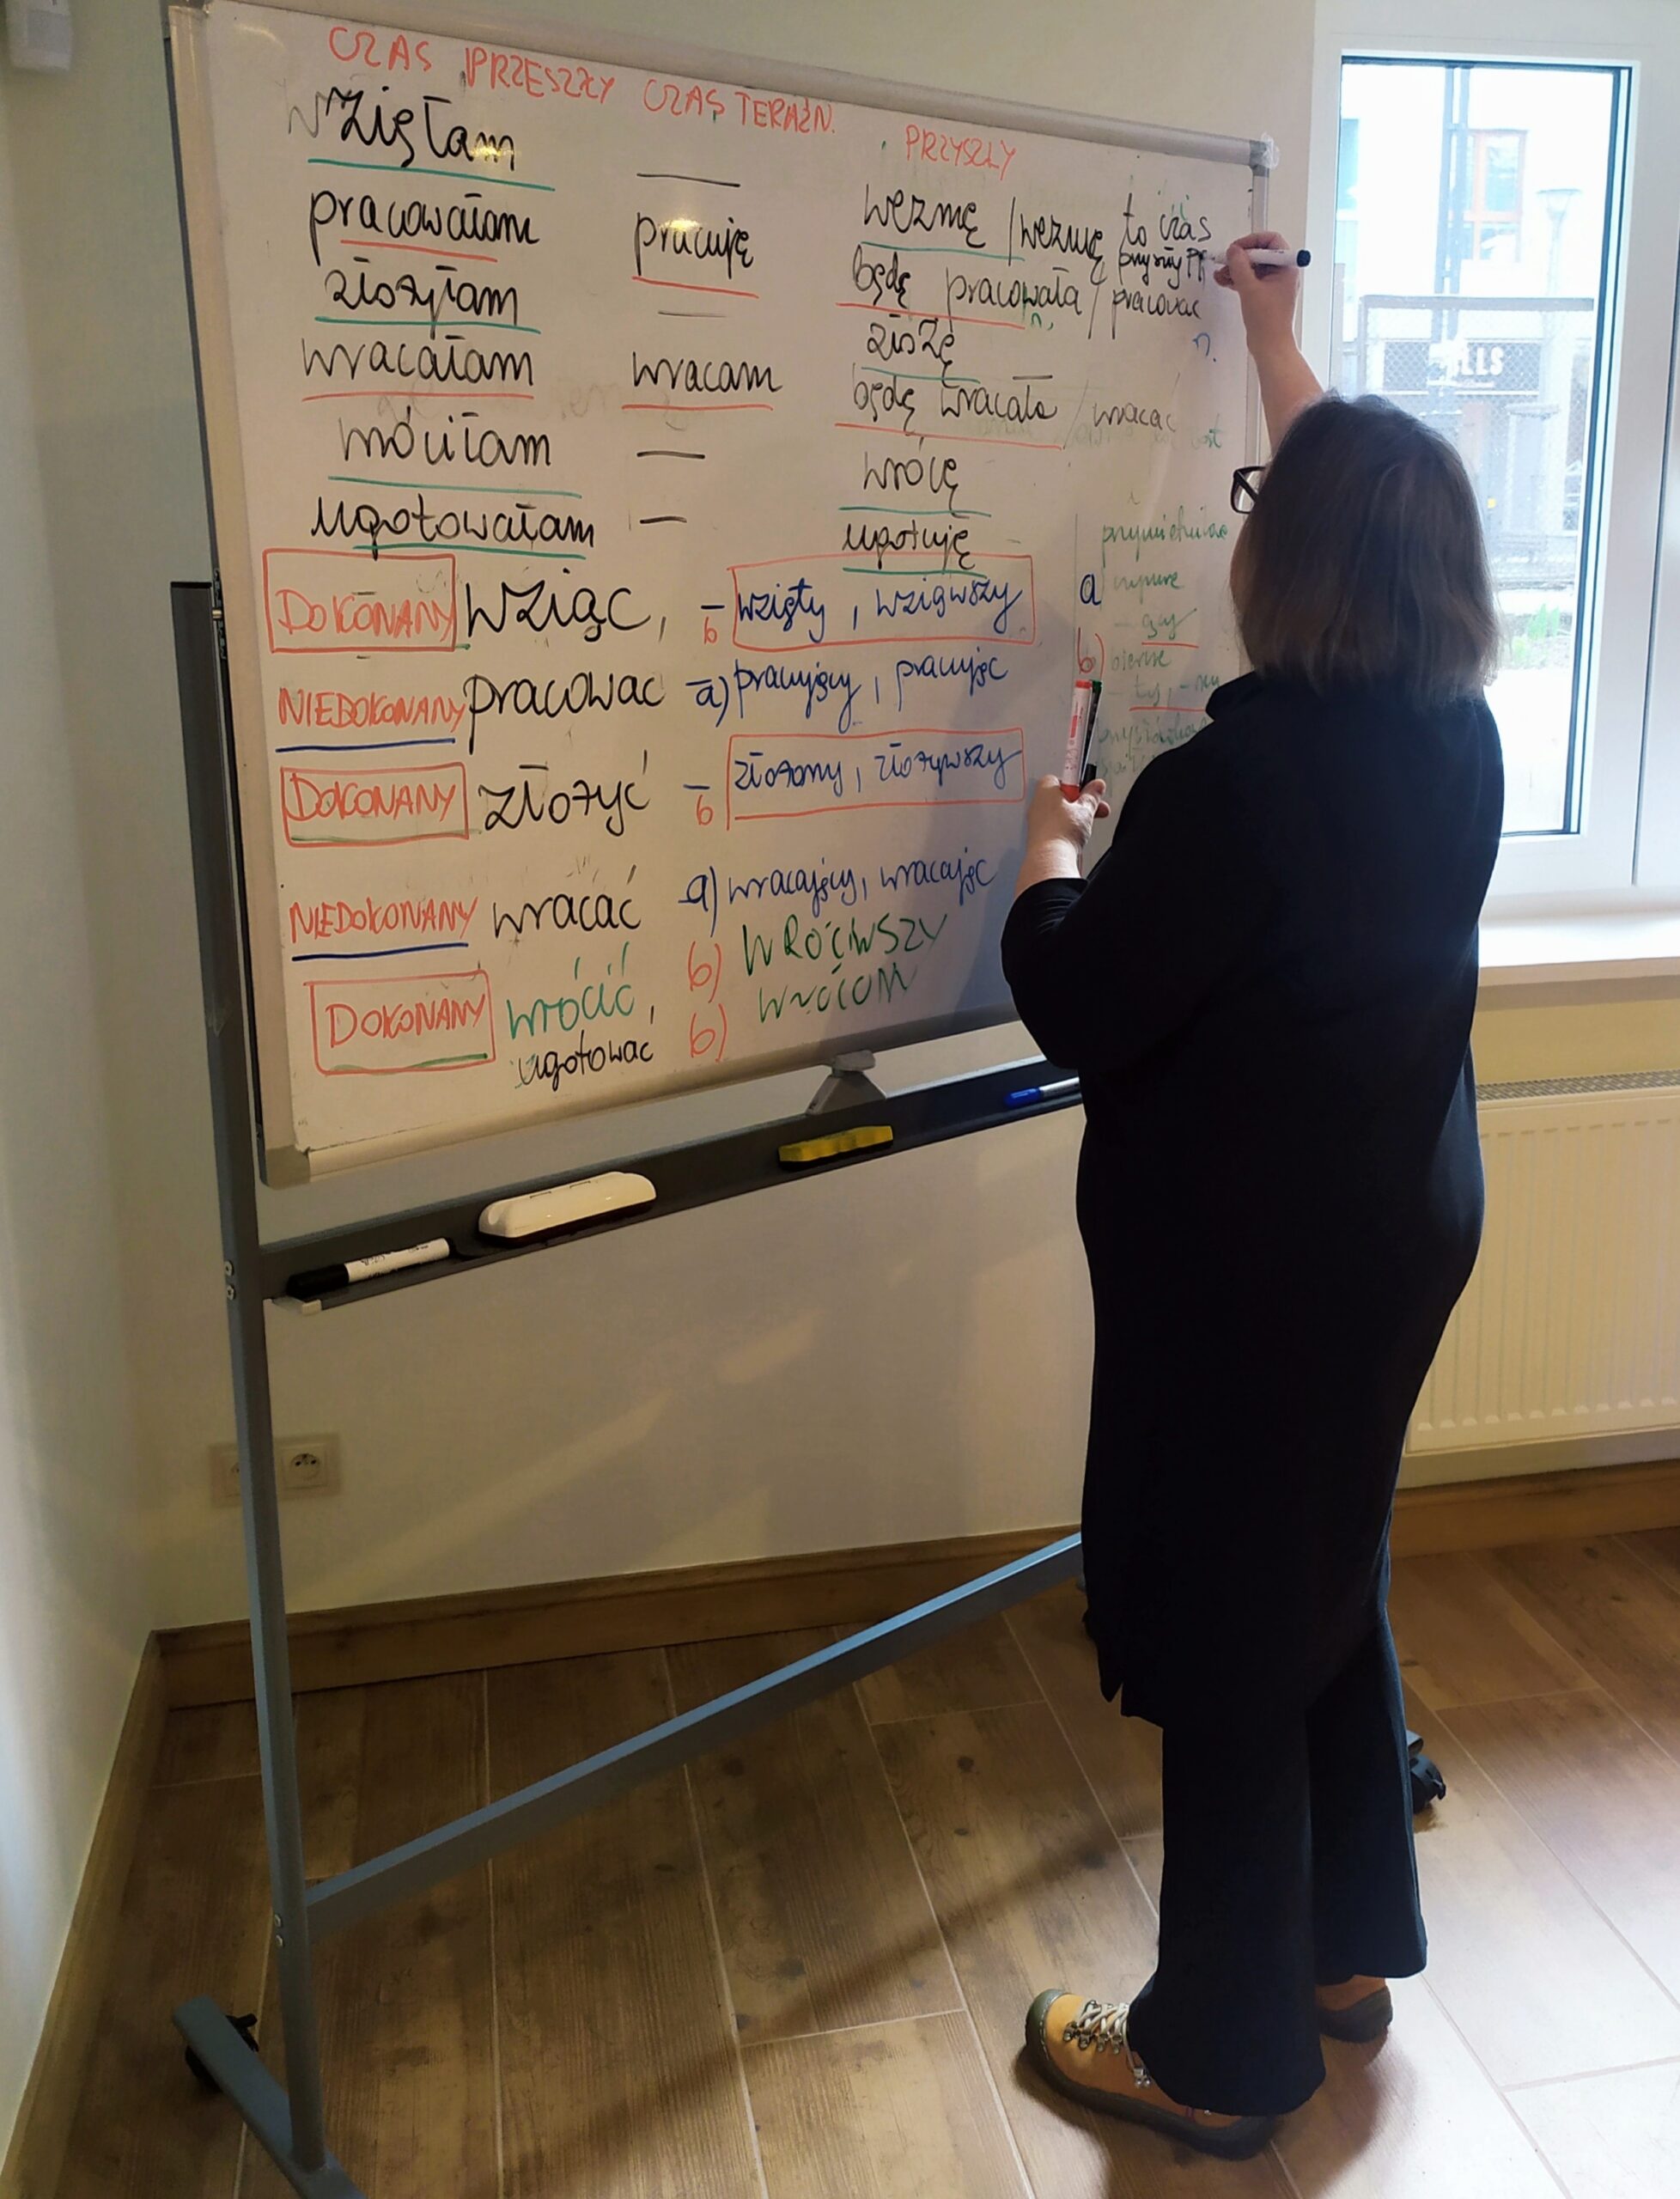 CZAS PRZESZŁY CZAS TERAŹN. PRZYSZŁY
wzięłam — weżmę / weżmę to czas
pracowałam pracuję będę pracowała / pracować
przyszły
złożyłam — złożę
wracałam wracam będę wracała / wracać
wróciłam — wrócę
ugotowałam — ugotuję
DOKONANY WZIĄĆ, – b wzięty, wziąwszy
NIEDOKONANY pracować – a) pracujący, pracując
DOKONANY złożyć – b złożony, złożywszy
NIEDOKONANY wracać a) wracający, wracając
DOKONANY wrócić, b) WRÓCIWSZY
ugotować b)
a
b) bierne